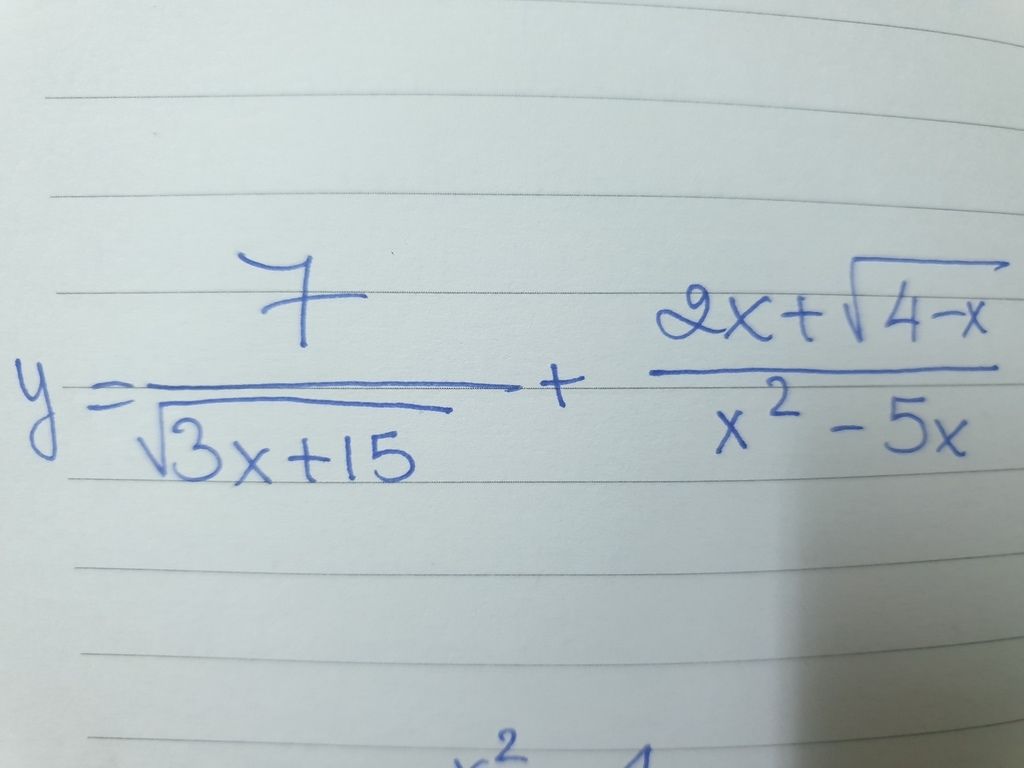 y = 7/√(3x+15) + (2x+√(4-x))/(x² - 5x)